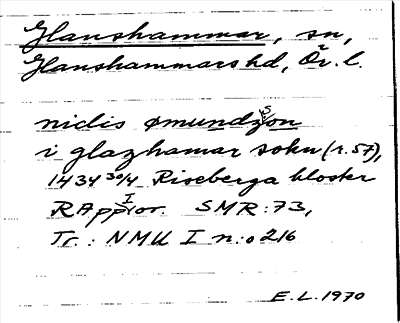 Glanshammar, sn,
Glanshammars hd, Ör. l.
nidis ømundzson
i glazhamar sokn (r. 57),
1434 30/4 Riseberga kloster
RApp I or. SMR: 73,
Tr.: NMU I n:o 216
E.L. 1970